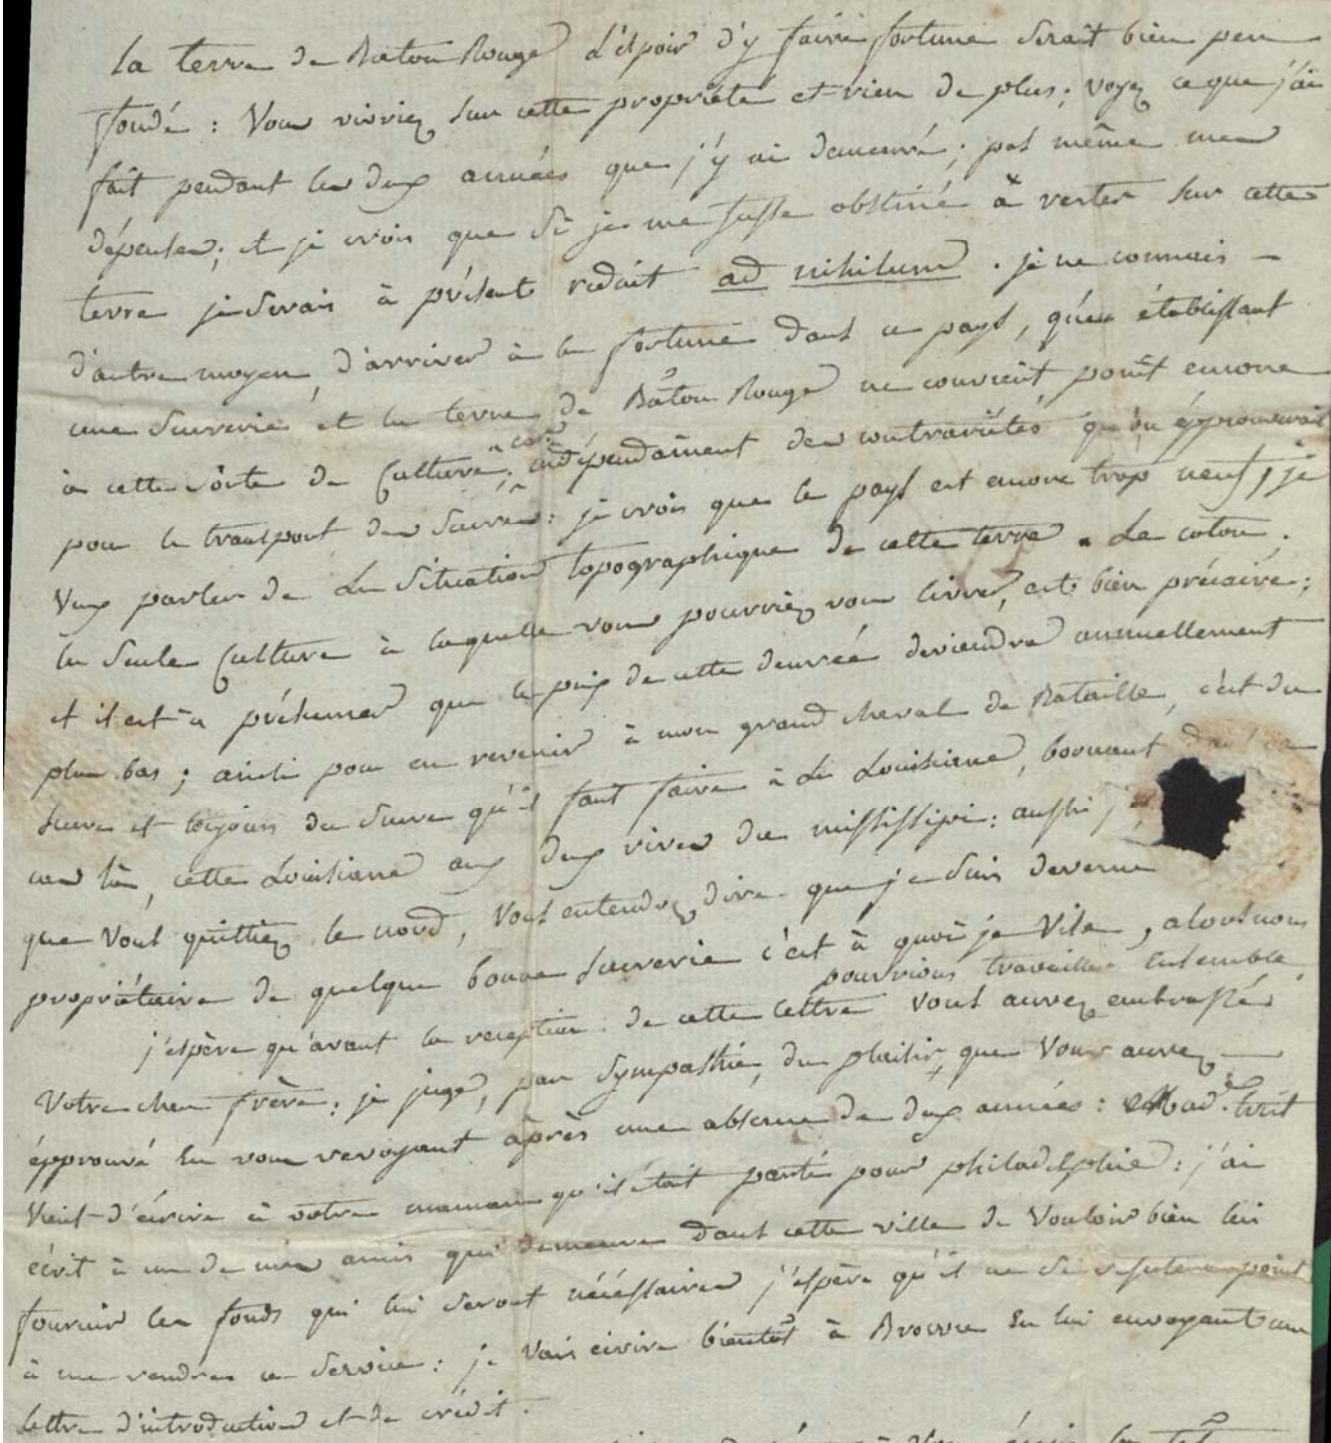 la terre de Baton Rouge l'espoir d'y faire fortune serait bien peu
fondé : Vous vivriez sur cette propriété et rien de plus ; voyez ce que j'ai
fait pendant les deux années que j'y ai demeuré ; pas même mes
dépenses ; et je crois que si je me fusse obstiné à rester sur cette
terre je serais à présent réduit ad nihilum . je ne connais
d'autre moyen, d'arriver à la fortune dans ce pays, qu'en établissant
une sucrerie et la terre de Bâton Rouge ne convient point encore
à cette sorte de Culture, car indépendament des contrariétés qu'on épprouverait
pour le transport des sucres : je crois que le pays est encore trop neuf, je
veux parler de la situation topographique de cette terre . Le coton,
la seule Culture à laquelle vous pourriez vous livrer, est bien précaire ;
et il est à présumer que le prix de cette denrée deviendra annuellement
plus bas ; ainsi pour en revenir à mon grand cheval de Bataille, c'est du
sucre et toujours du sucre qu'il faut faire à la Louisiane, bornant
cette Louisiane aux deux rives du mississipi : aussi
que vous quittiez le nord, vous entendrez dire que je suis devenu
propriétaire de quelque bonne sucrerie c'est à quoi je vise, alors nous
pourrions travailler ensemble
j'espère qu'avant la reception de cette lettre vous aurez embrassé
votre cher frère ; je juge, par sympathie, du plaisir, que vous aurez
épprouvé en vous revoyant après une absence de deux années : Mad.e
vient d'écrire à votre maman qu'il était parti pour philadelphie : j'ai
écrit à un de mes amis qui demeure dans cette ville de vouloir bien lui
fournir les fonds qui lui seront nécéssaires j'espère qu'il ne se refusera point
à me rendre ce service : je vais écrire bientôt à en lui envoyant une
lettre d'introduction et de crédit .